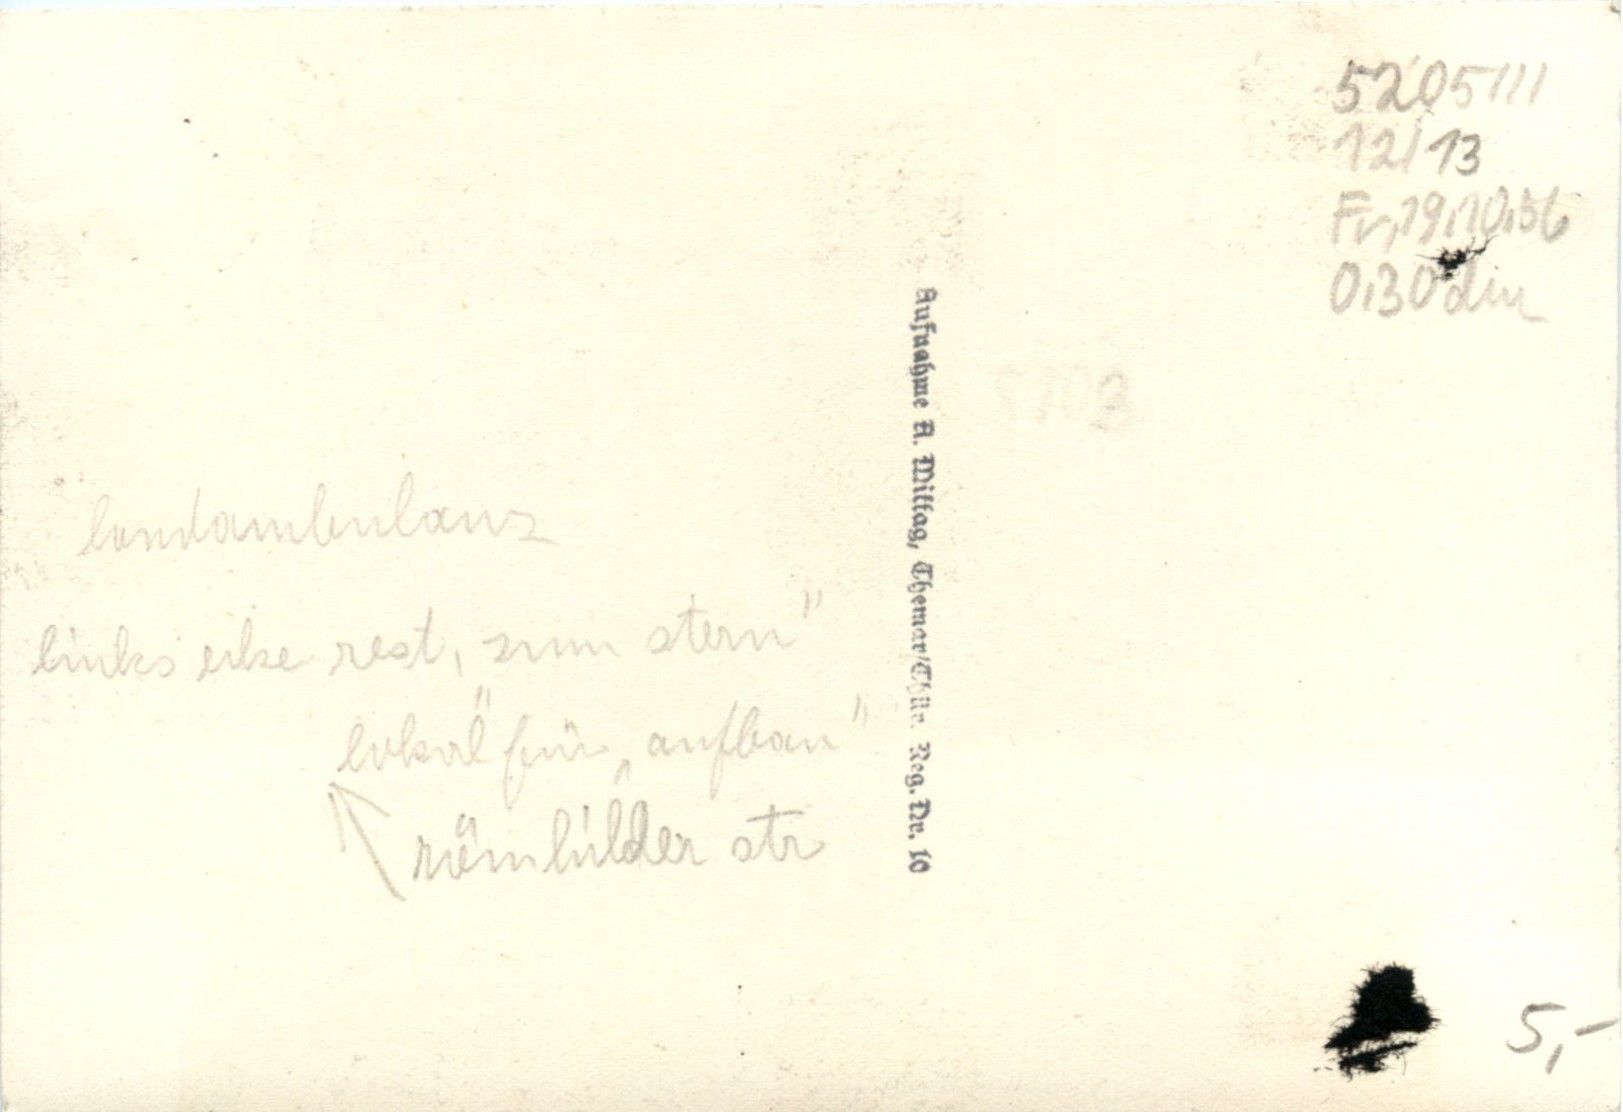 5205111
12/13
Fr, 19.10.56
0,30 dm
landambulanz
links erke rest, zum stern"
lokal für „aufbau"
römhilder str
Aufnahme A. Mittag, Themar/Thür. Reg. Nr. 10
5,-